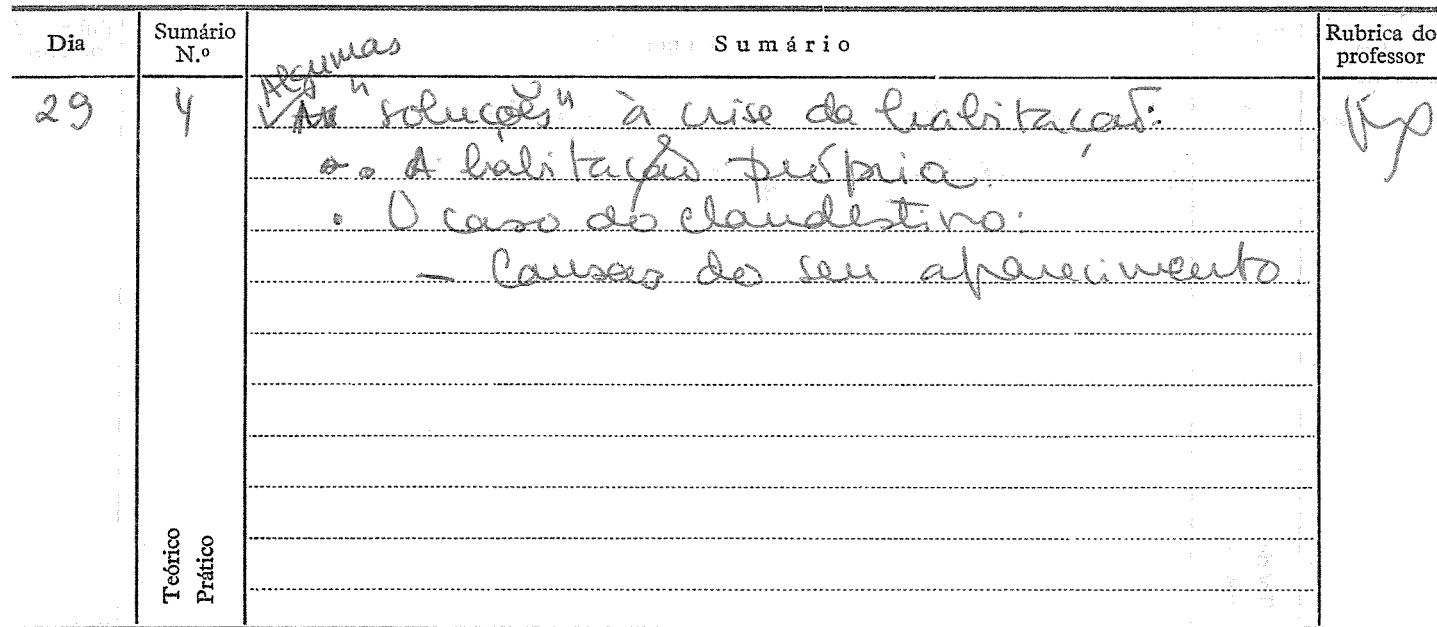 Dia Sumário N.º Sumário Rubrica do professor
Algumas
29 4 "soluções" à crise da habitação:
. A habitação própria.
. O caso do clandestino:
- Causas do seu aparecimento
Teórico
Prático